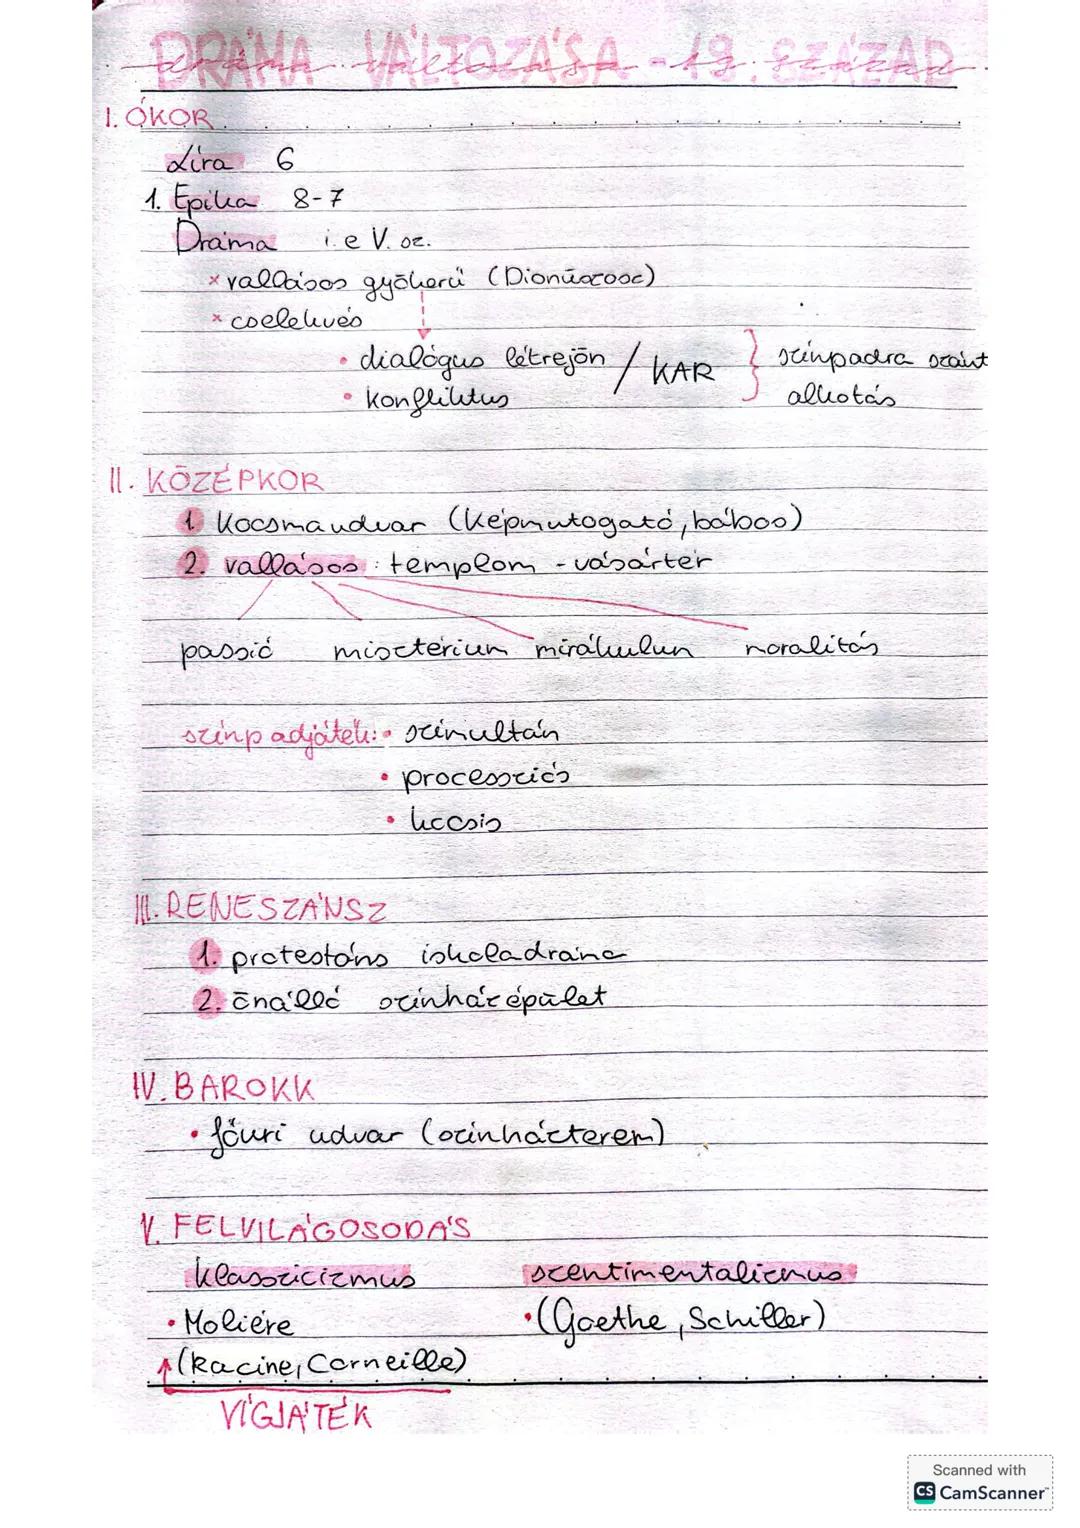 DRÁMA VÁLTOZÁSA - 19. SZÁZAD
I. ÓKOR
Líra 6
1. Epika 8-7
Dráma i.e V. sz.
× vallásos gyökerű (Dionüszosz)
× cselekvés
• dialógus létrejön / KAR } színpadra szánt
• konfliktus alkotás
II. KÖZÉPKOR
1. Kocsmaudvar (képmutogató, bábos)
2. vallásos: templom - vásártér
passió misztérium mirákulum moralitás
színpadjáték: • szimultán
• processziós
• kocsis
III. RENESZÁNSZ
1. protestáns iskoladráma
2. önálló színházépület
IV. BAROKK
• főúri udvar (színházterem)
V. FELVILÁGOSODÁS
klasszicizmus szentimentalizmus
• Moliére • (Goethe, Schiller)
(Racine, Corneille)
VÍGJÁTÉK
Scanned with
CS CamScanner